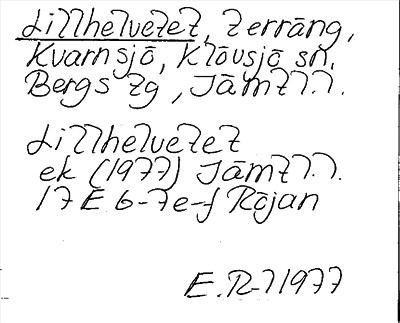 Lillhelvetet, terräng,
Kvarnsjö, Klövsjö sn,
Bergs tg, Jämtl.l.
Lillhelvetet
ek (1977) Jämtl.l.
17 E 6-7e-f Röjan
E.R-l 1977